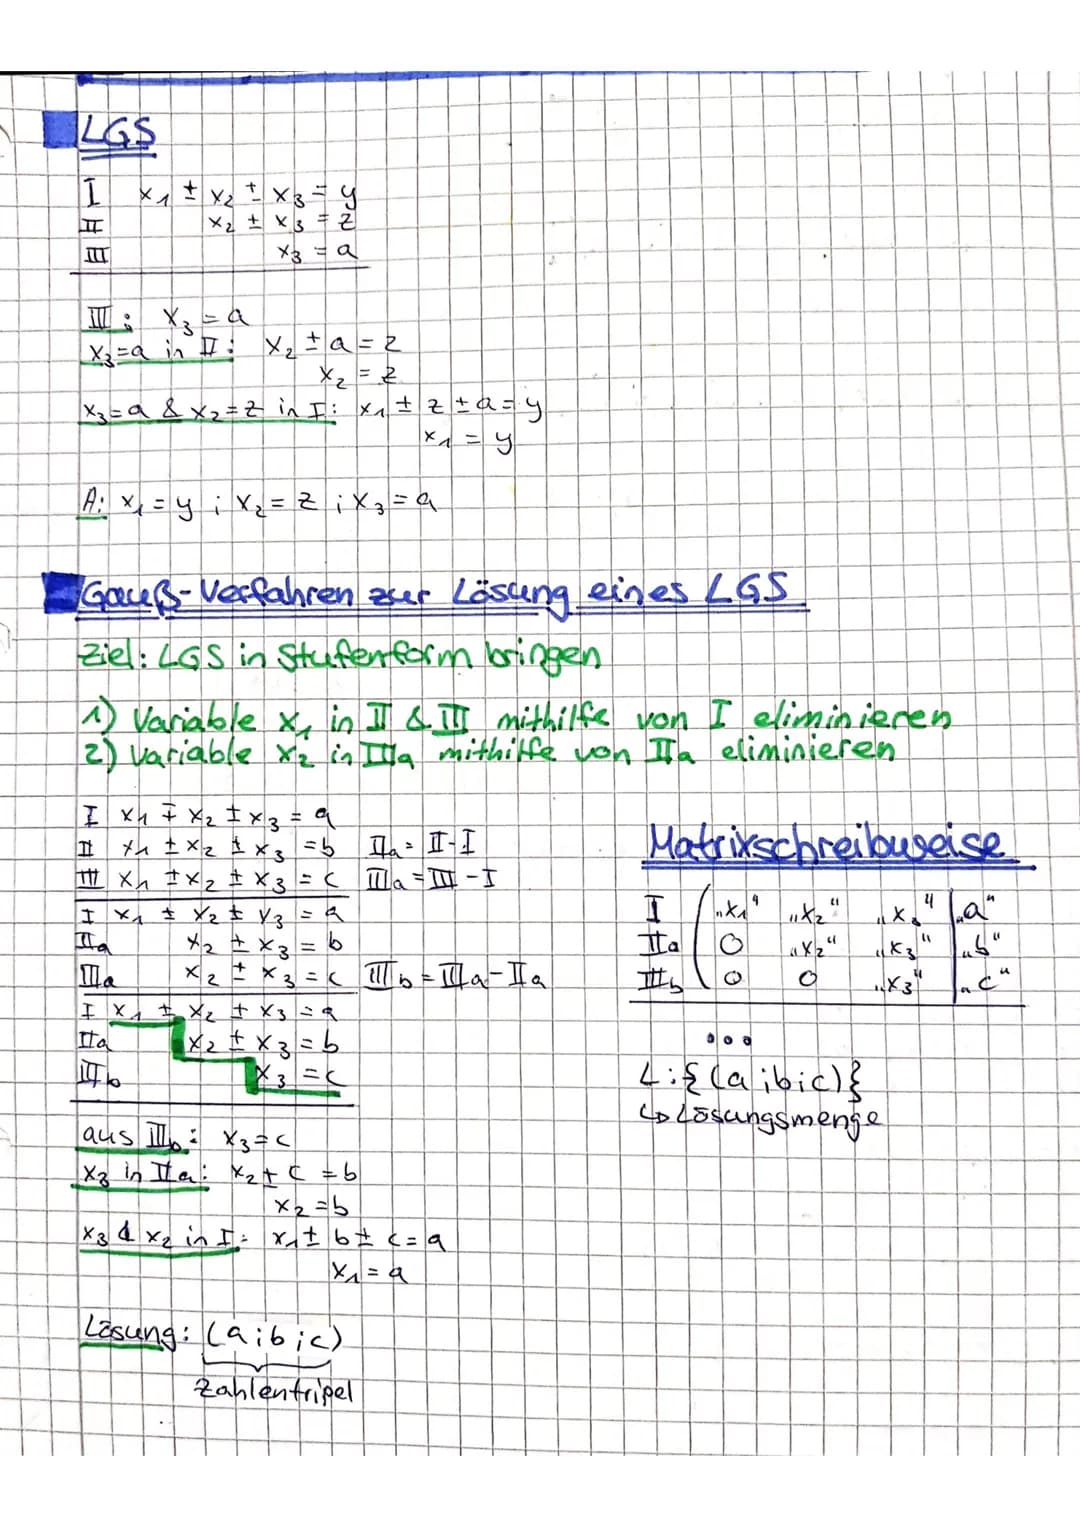 LGS
I x₁ ± x₂ ± x₃ = y
II x₂ ± x₃ = z
III x₃ = a
III: x₃ = a
x₃=a in II: x₂ ± a = z
x₂ = z
x₃=a & x₂=z in I: x₁ ± z ± a = y
x₁ = y
A: x₁ = y ; x₂ = z ; x₃ = a
Gauß-Verfahren zur Lösung eines LGS
Ziel: LGS in Stufenform bringen
1) Variable x₁ in II & III mithilfe von I eliminieren
2) Variable x₂ in IIIa mithilfe von IIa eliminieren
I x₁ ∓ x₂ ± x₃ = a
II x₁ ± x₂ ± x₃ = b IIa = II - I
III x₁ ± x₂ ± x₃ = c IIIa = III - I
I x₁ ± x₂ ± x₃ = a
IIa x₂ ± x₃ = b
IIIa x₂ ± x₃ = c IIIb = IIIa - IIa
I x₁ ± x₂ ± x₃ = a
IIa x₂ ± x₃ = b
IIIb x₃ = c
aus IIIb: x₃ = c
x₃ in IIa: x₂ ± c = b
x₂ = b
x₃ & x₂ in I: x₁ ± b ± c = a
x₁ = a
Lösung: (a;b;c)
Zahlentripel
Matrixschreibweise
I ( „x₁“ „x₂“ „x₃“ | „a“
IIa 0 „x₂“ „x₃“ | „b“
IIIb 0 0 „x₃“ | „c“
...
L:{(a;b;c)}
↳ Lösungsmenge